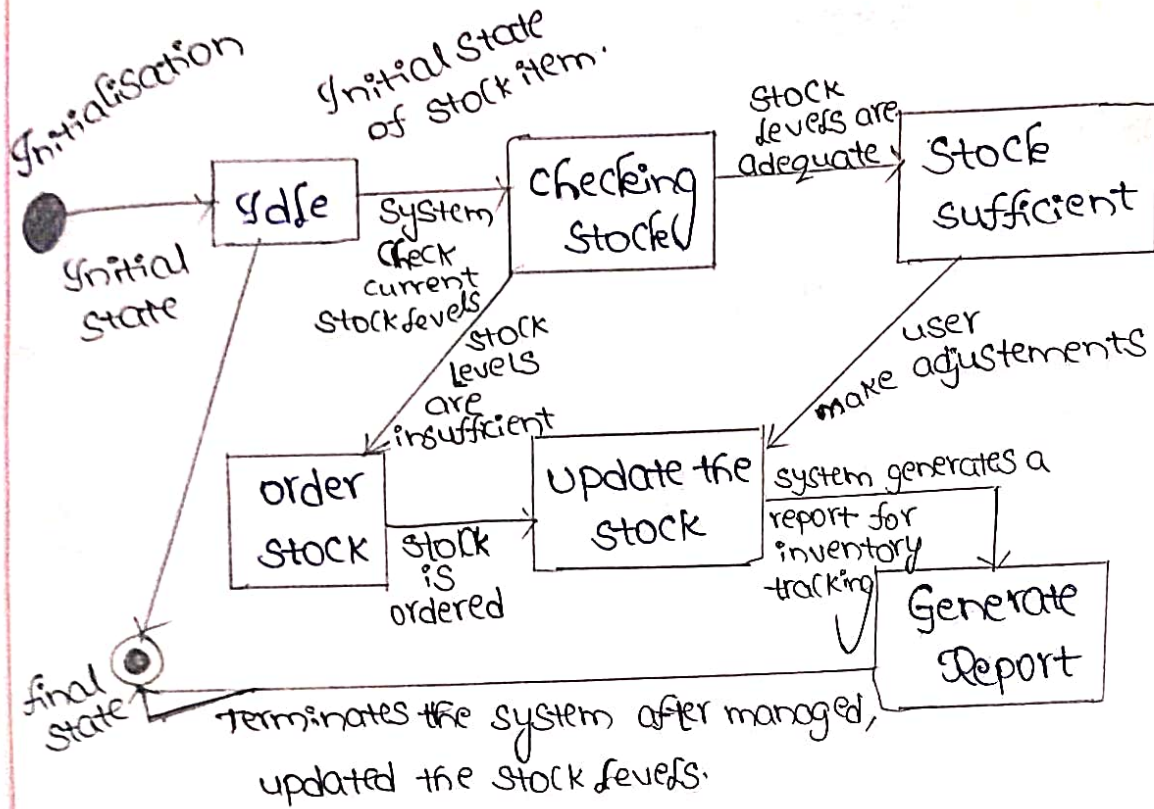 Initialisation
Initial State
of stock item.
Initial
state
Idle
System
check
current
stock levels
checking
stock
Stock
levels are
adequate
Stock
sufficient
stock
levels
are
insufficient
user
make adjustements
order
stock
stock
is
ordered
update the
stock
system generates a
report for
inventory
tracking
Generate
Report
final
state
Terminates the system after managed,
updated the stock levels.